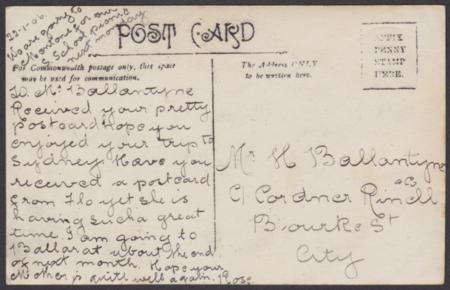 22-1-06.
We are going to
Mentone for our
S. School picnic
next monday
POST CARD
For Commonwealth postage only, this space
may be used for communication.
The Address ONLY
to be written here.
AFFIX
PENNY
STAMP
HERE.
To Mr Ballantyne
Received your pretty
postcard Hope you
enjoyed your trip to
Sydney Have you
received a postcard
from Flo yet she is
having such a great
time I am going to
Ballarat about the end
of next month. Hope your
Mother is quite well again. Rose.
Mr H Ballantyne
C/ Gardner
& Co
Bourke St
City